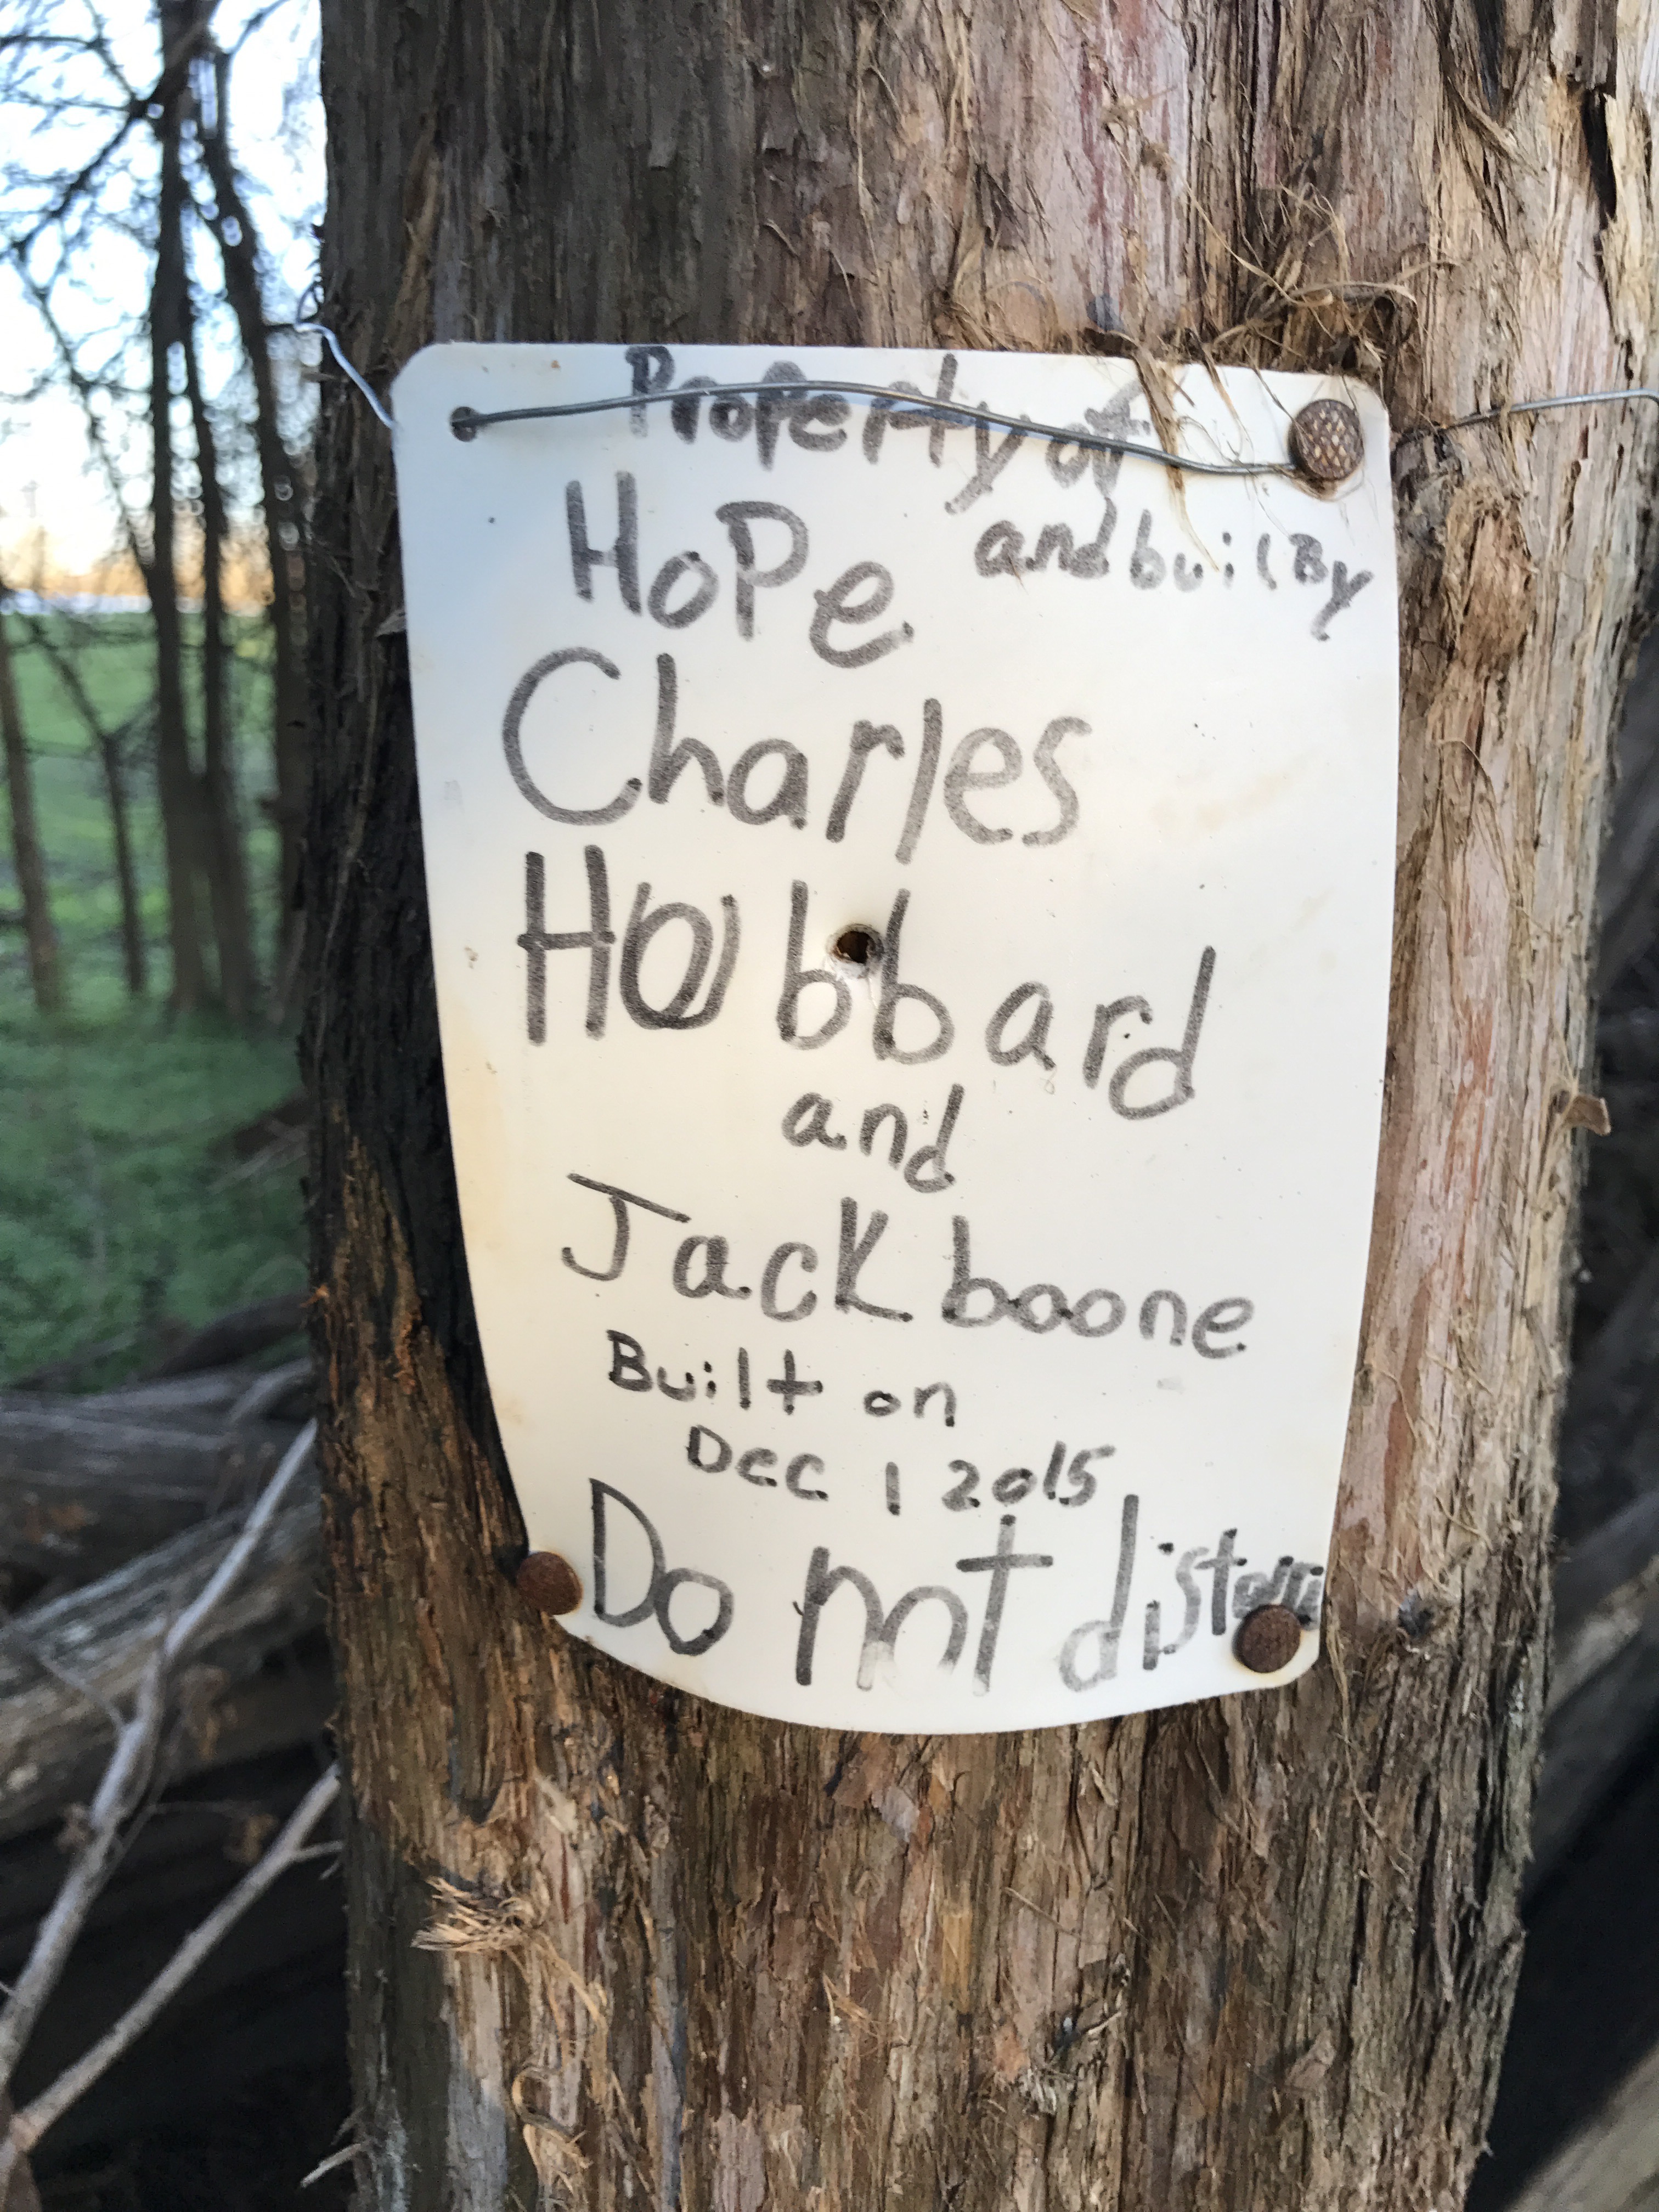 Property of
and buil By
HoPe
Charles
Hubbard
and
Jack boone
Built on
Dec 1 2015
Do not